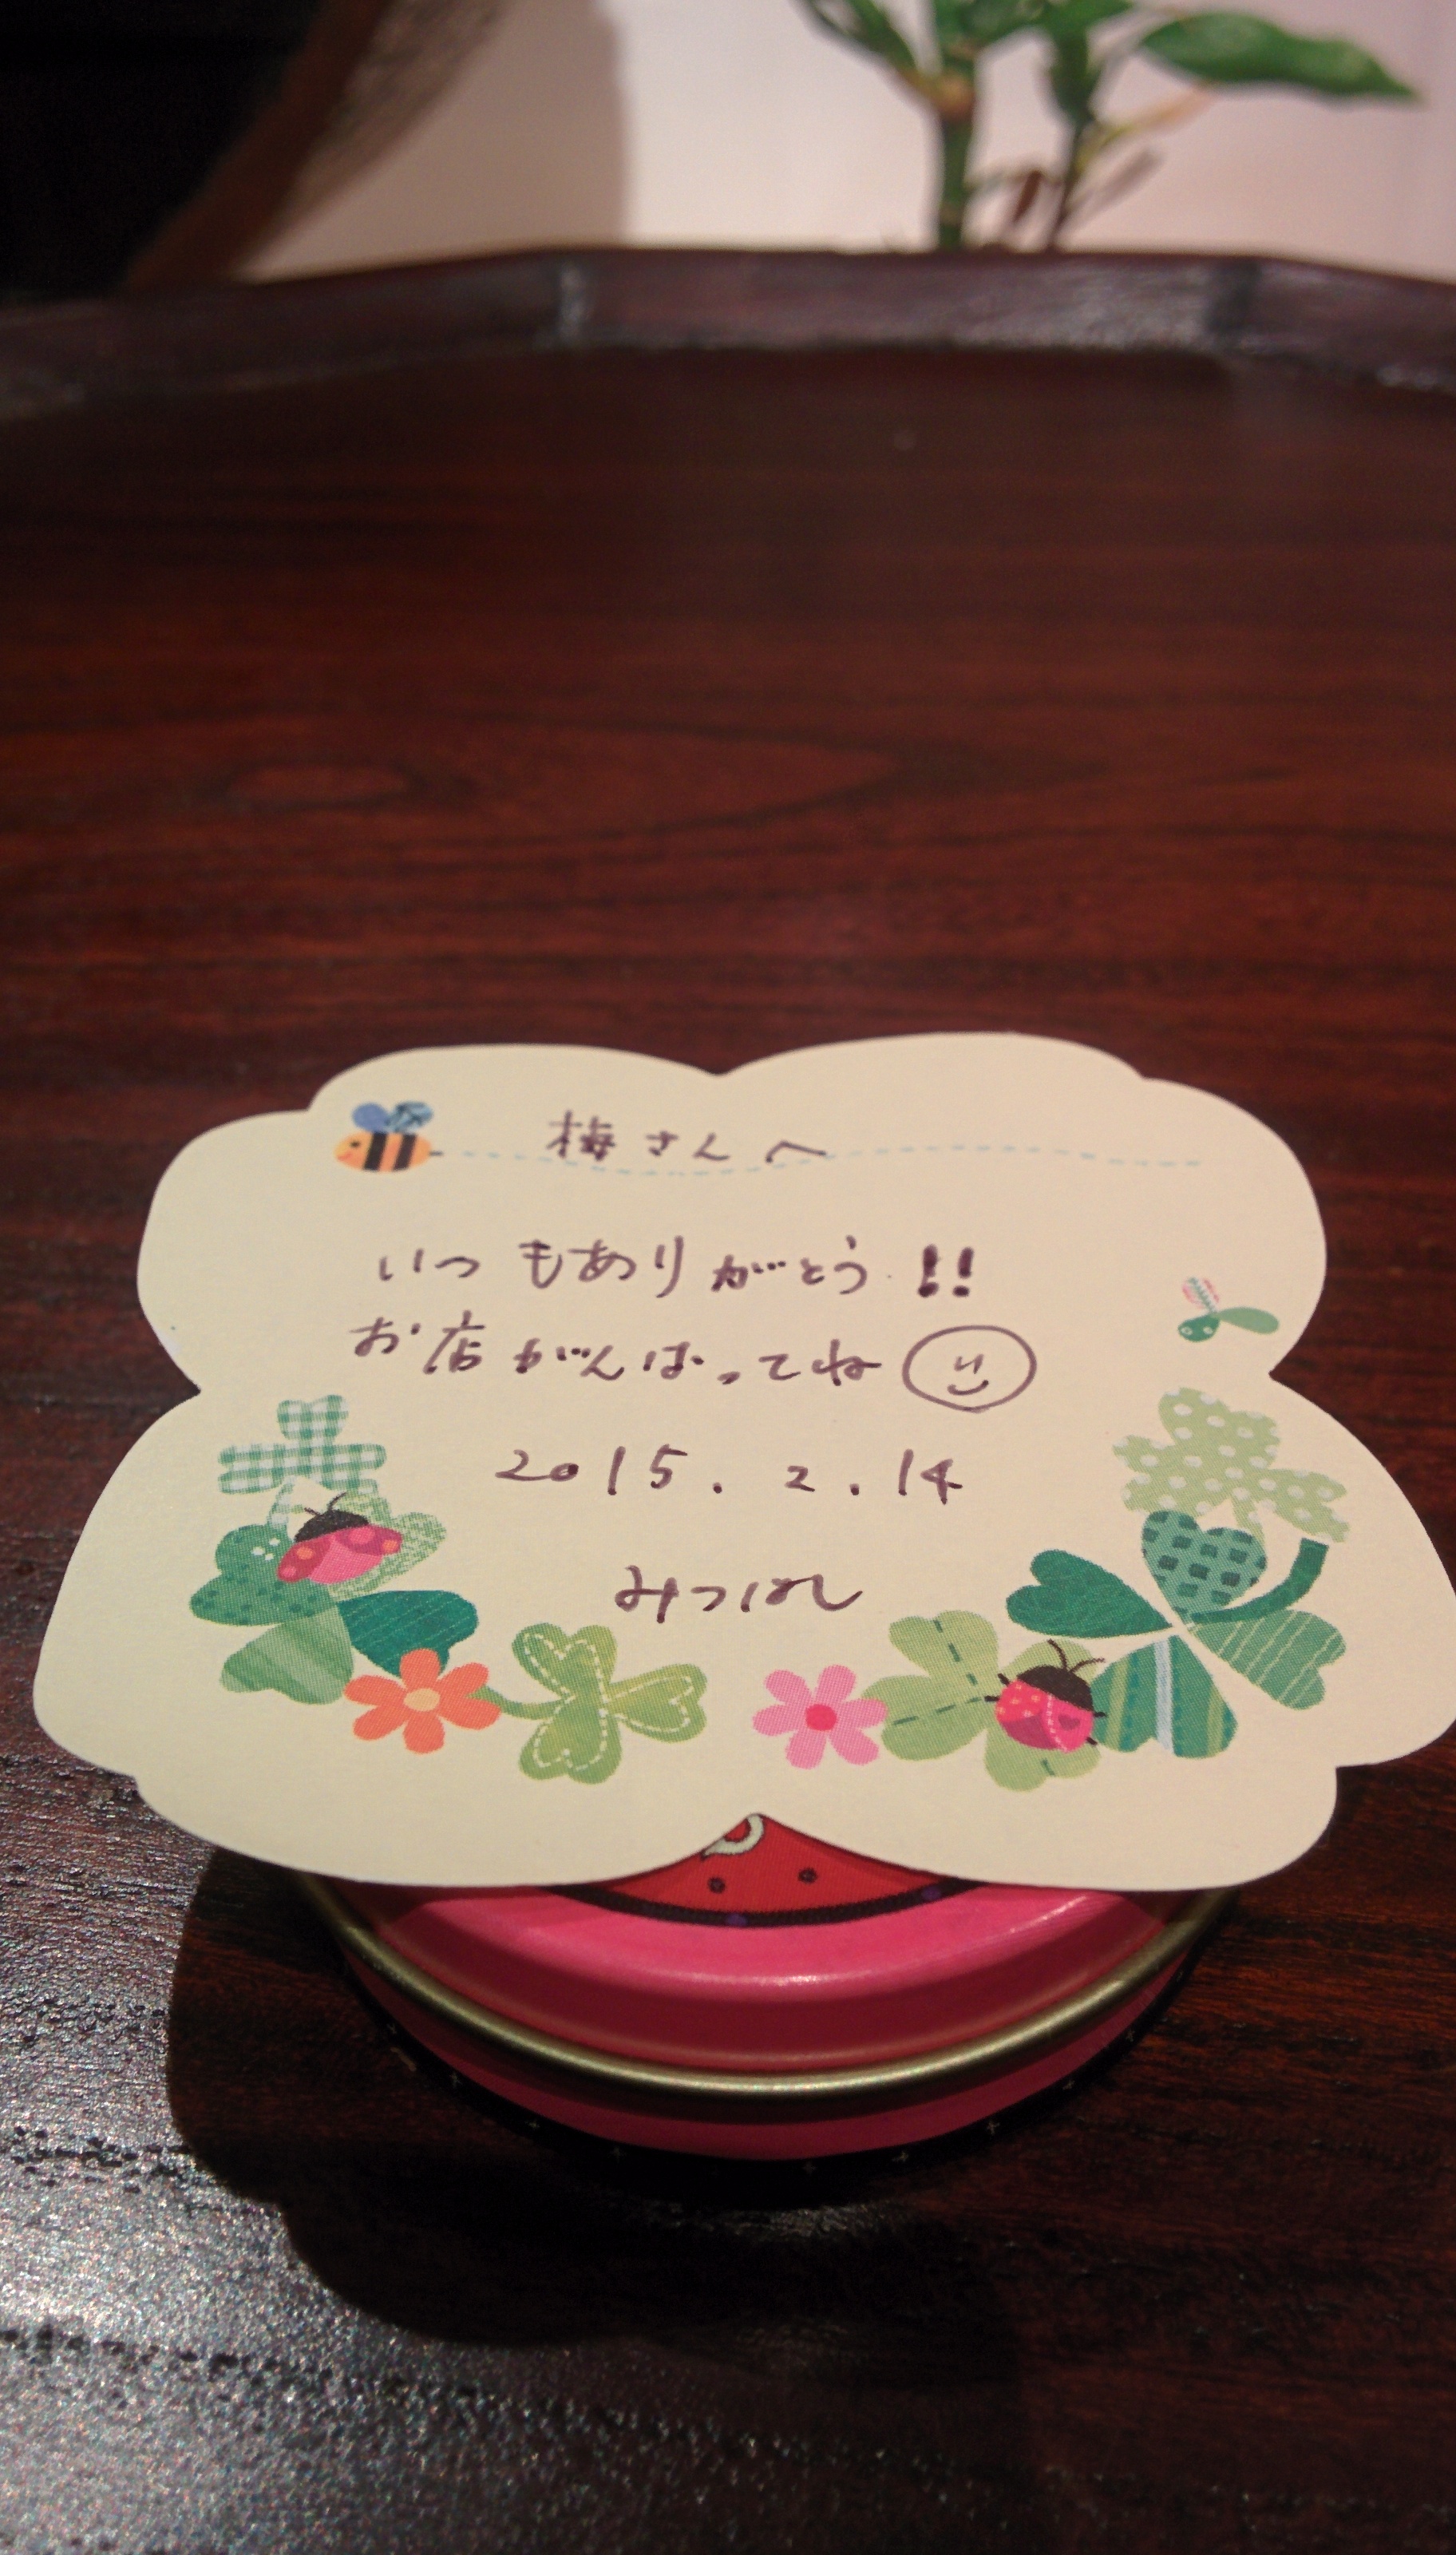 梅さんへ
いつもありがとう!!
お店がんばってね
2015.2.14
みつはし